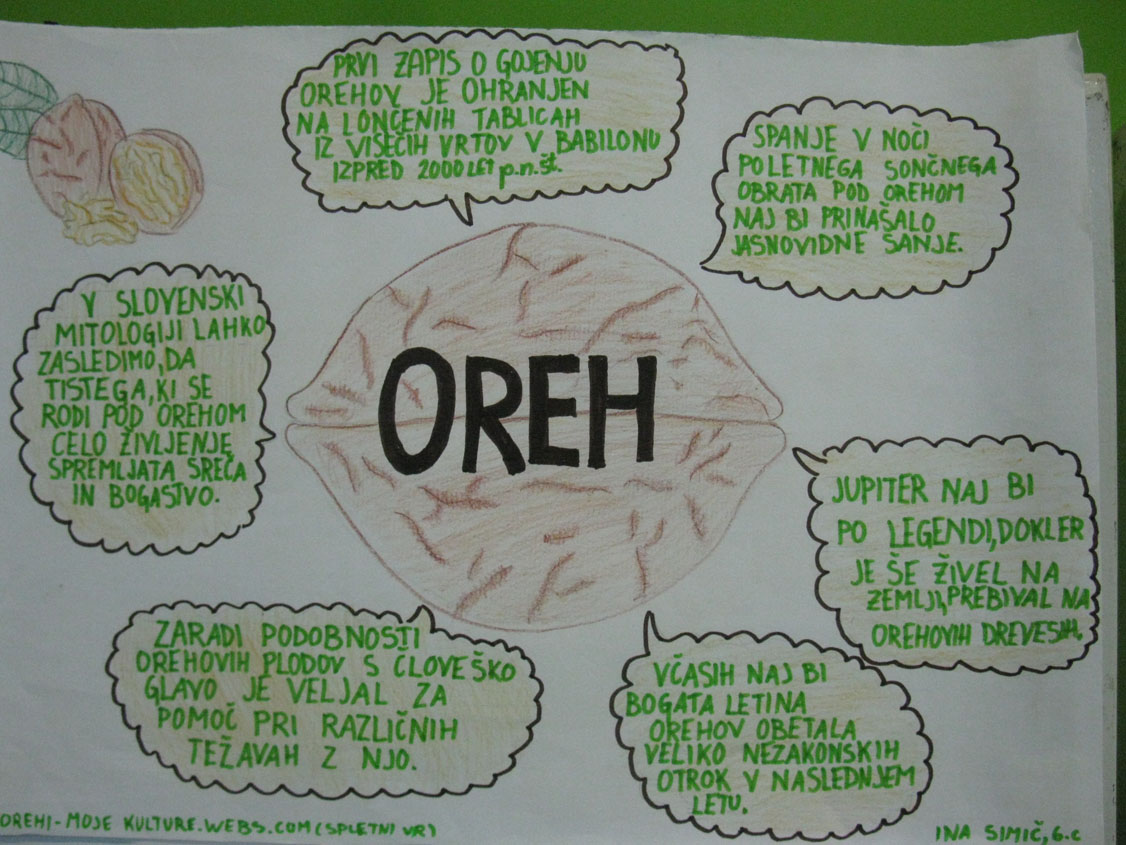 PRVI ZAPIS O GOJENJU
OREHOV JE OHRANJEN
NA LONČENIH TABLICAH
IZ VISEČIH VRTOV V BABILONU
IZPRED 2000 LET p.n.št.
SPANJE V NOČI
POLETNEGA SONČNEGA
OBRATA POD OREHOM
NAJ BI PRINAŠALO
JASNOVIDNE SANJE.
V SLOVENSKI
MITOLOGIJI LAHKO
ZASLEDIMO, DA
TISTEGA, KI SE
RODI POD OREHOM
CELO ŽIVLJENJE
SPREMLJATA SREČA
IN BOGASTVO.
OREH
JUPITER NAJ BI
PO LEGENDI, DOKLER
JE ŠE ŽIVEL NA
ZEMLJI, PREBIVAL NA
OREHOVIH DREVESIH.
ZARADI PODOBNOSTI
OREHOVIH PLODOV S ČLOVEŠKO
GLAVO JE VELJAL ZA
POMOČ PRI RAZLIČNIH
TEŽAVAH Z NJO.
VČASIH NAJ BI
BOGATA LETINA
OREHOV OBETALA
VELIKO NEZAKONSKIH
OTROK V NASLEDNJEM
LETU.
OREHI-MOJE KULTURE.WEBS.COM (SPLETNI VR)
INA SIMIČ, 6.c